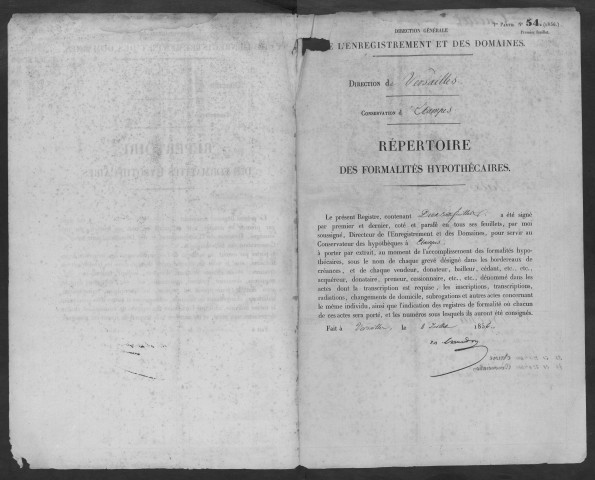 DIRECTION GÉNÉRALE
L'ENREGISTREMENT ET DES DOMAINES.
N° 54
DIRECTION d Versailles
CONSERVATION d Etampes
RÉPERTOIRE
DES FORMALITÉS HYPOTHÉCAIRES.
Le présent Registre, contenant a été signé
par premier et dernier, coté et parafé en tous ses feuillets, par moi
soussigné, Directeur de l'Enregistrement et des Domaines, pour servir au
Conservateur des hypothèques à Etampes
à porter par extrait, au moment de l'accomplissement des formalités hypo-
thécaires, sous le nom de chaque grevé désigné dans les bordereaux de
créances, et de chaque vendeur, donateur, bailleur, cédant, etc., etc.,
acquéreur, donataire, preneur, cessionnaire, etc., etc., dénommé dans les
actes dont la transcription est requise, les inscriptions, transcriptions,
radiations, changements de domicile, subrogations et autres actes concernant
le même individu, ainsi que l'indication des registres de formalité où chacun
de ces actes sera porté, et les numéros sous lesquels ils auront été consignés.
Fait à Versailles le 185